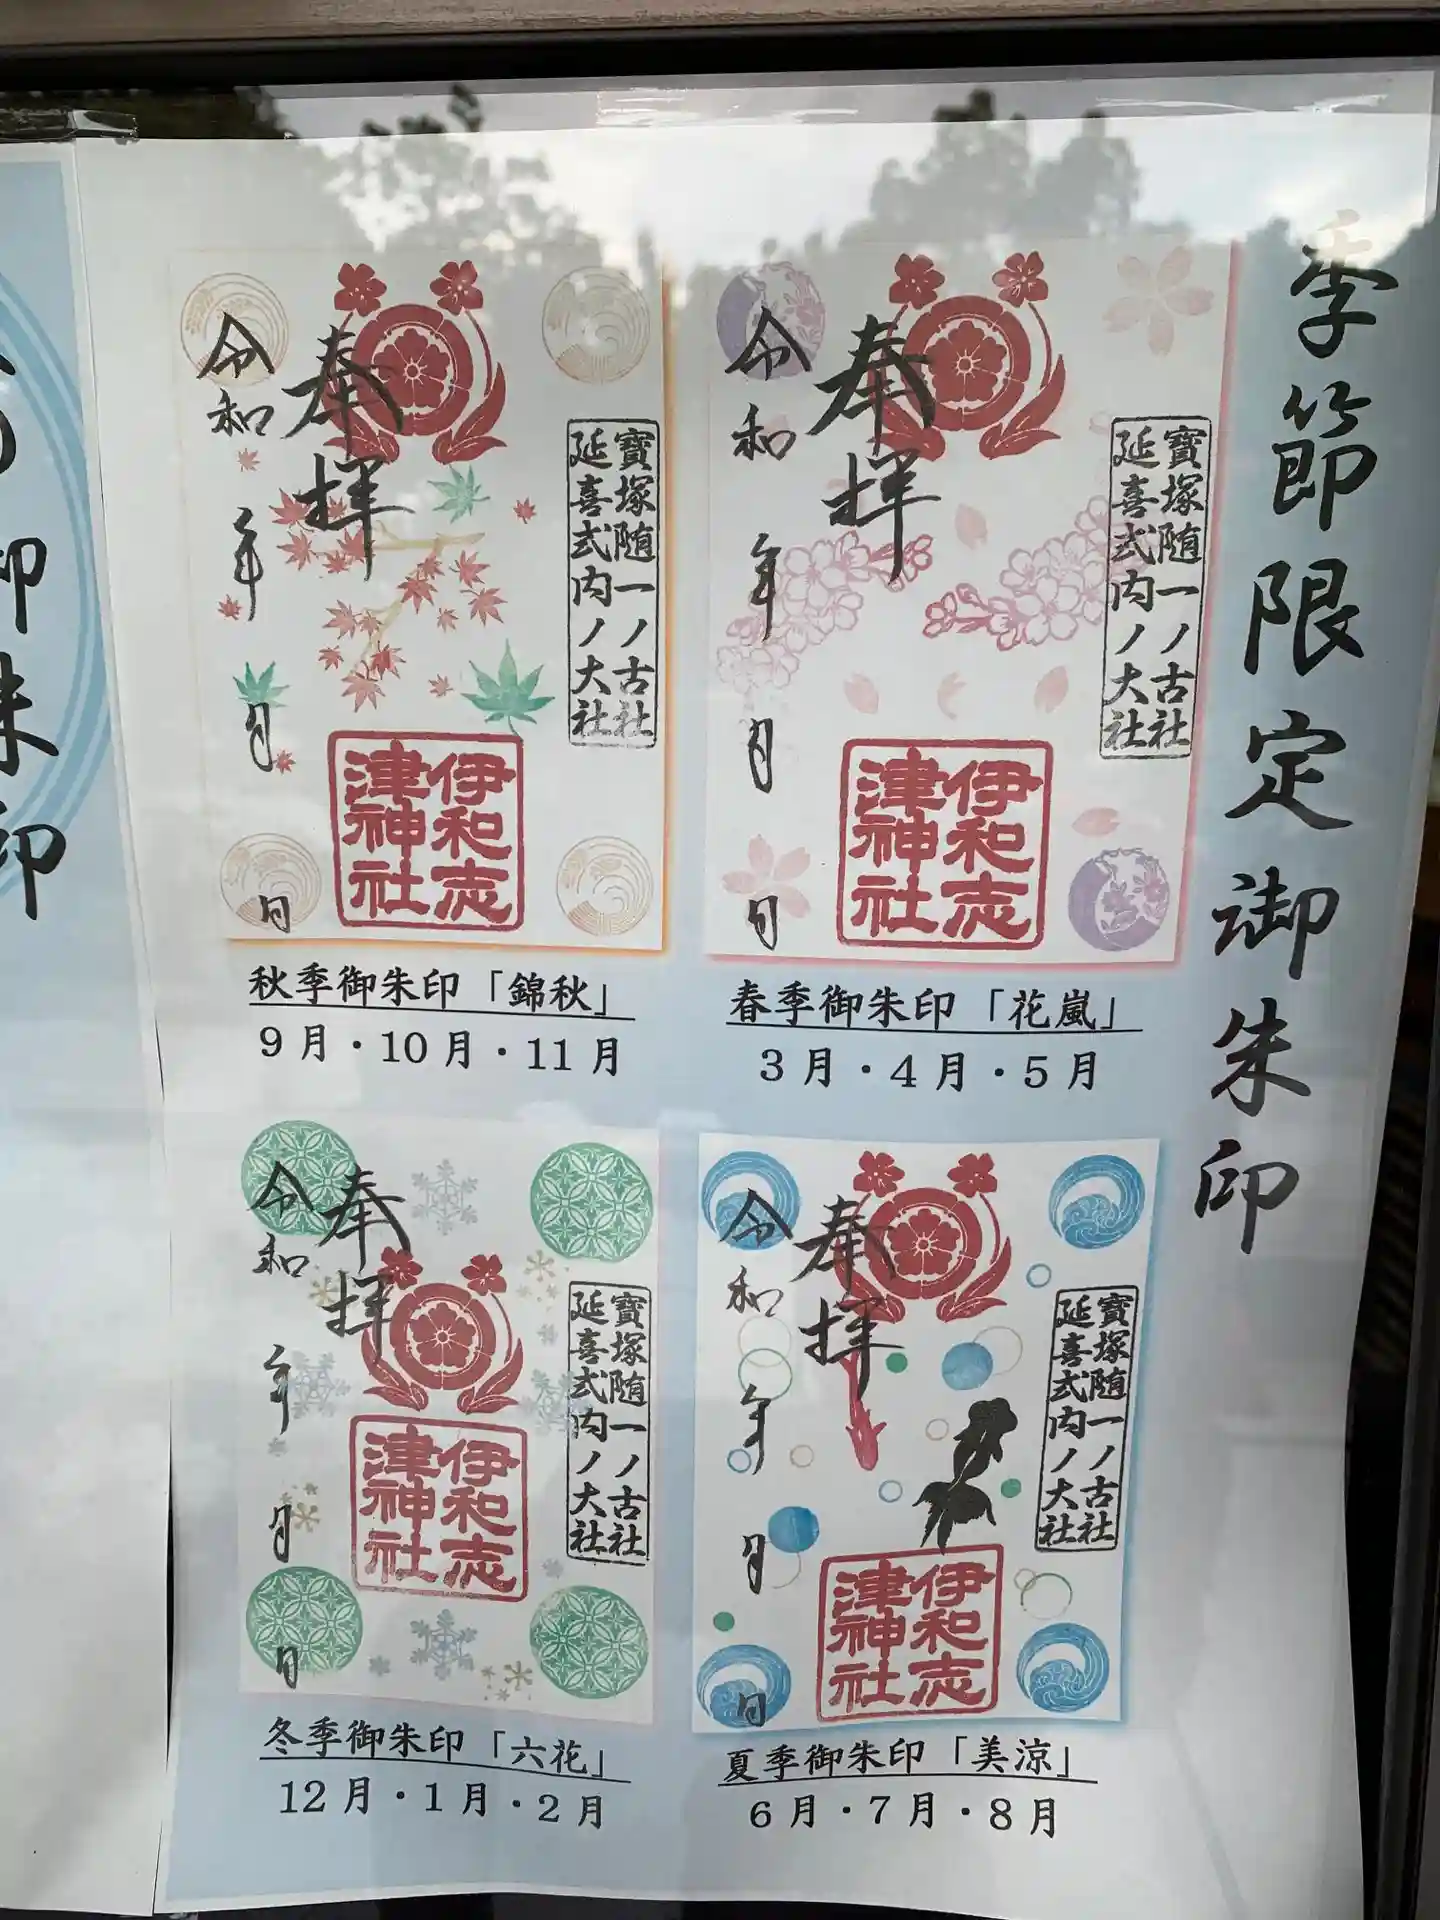 季節限定御朱印
奉拝
令和 年 月 日
寶塚随一ノ古社
延喜式内ノ大社
伊和志
津神社
春季御朱印「花嵐」
3月・4月・5月
奉拝
令和 年 月 日
寶塚随一ノ古社
延喜式内ノ大社
伊和志
津神社
秋季御朱印「錦秋」
9月・10月・11月
奉拝
令和 年 月 日
寶塚随一ノ古社
延喜式内ノ大社
伊和志
津神社
夏季御朱印「美涼」
6月・7月・8月
奉拝
令和 年 月 日
寶塚随一ノ古社
延喜式内ノ大社
伊和志
津神社
冬季御朱印「六花」
12月・1月・2月
御朱印